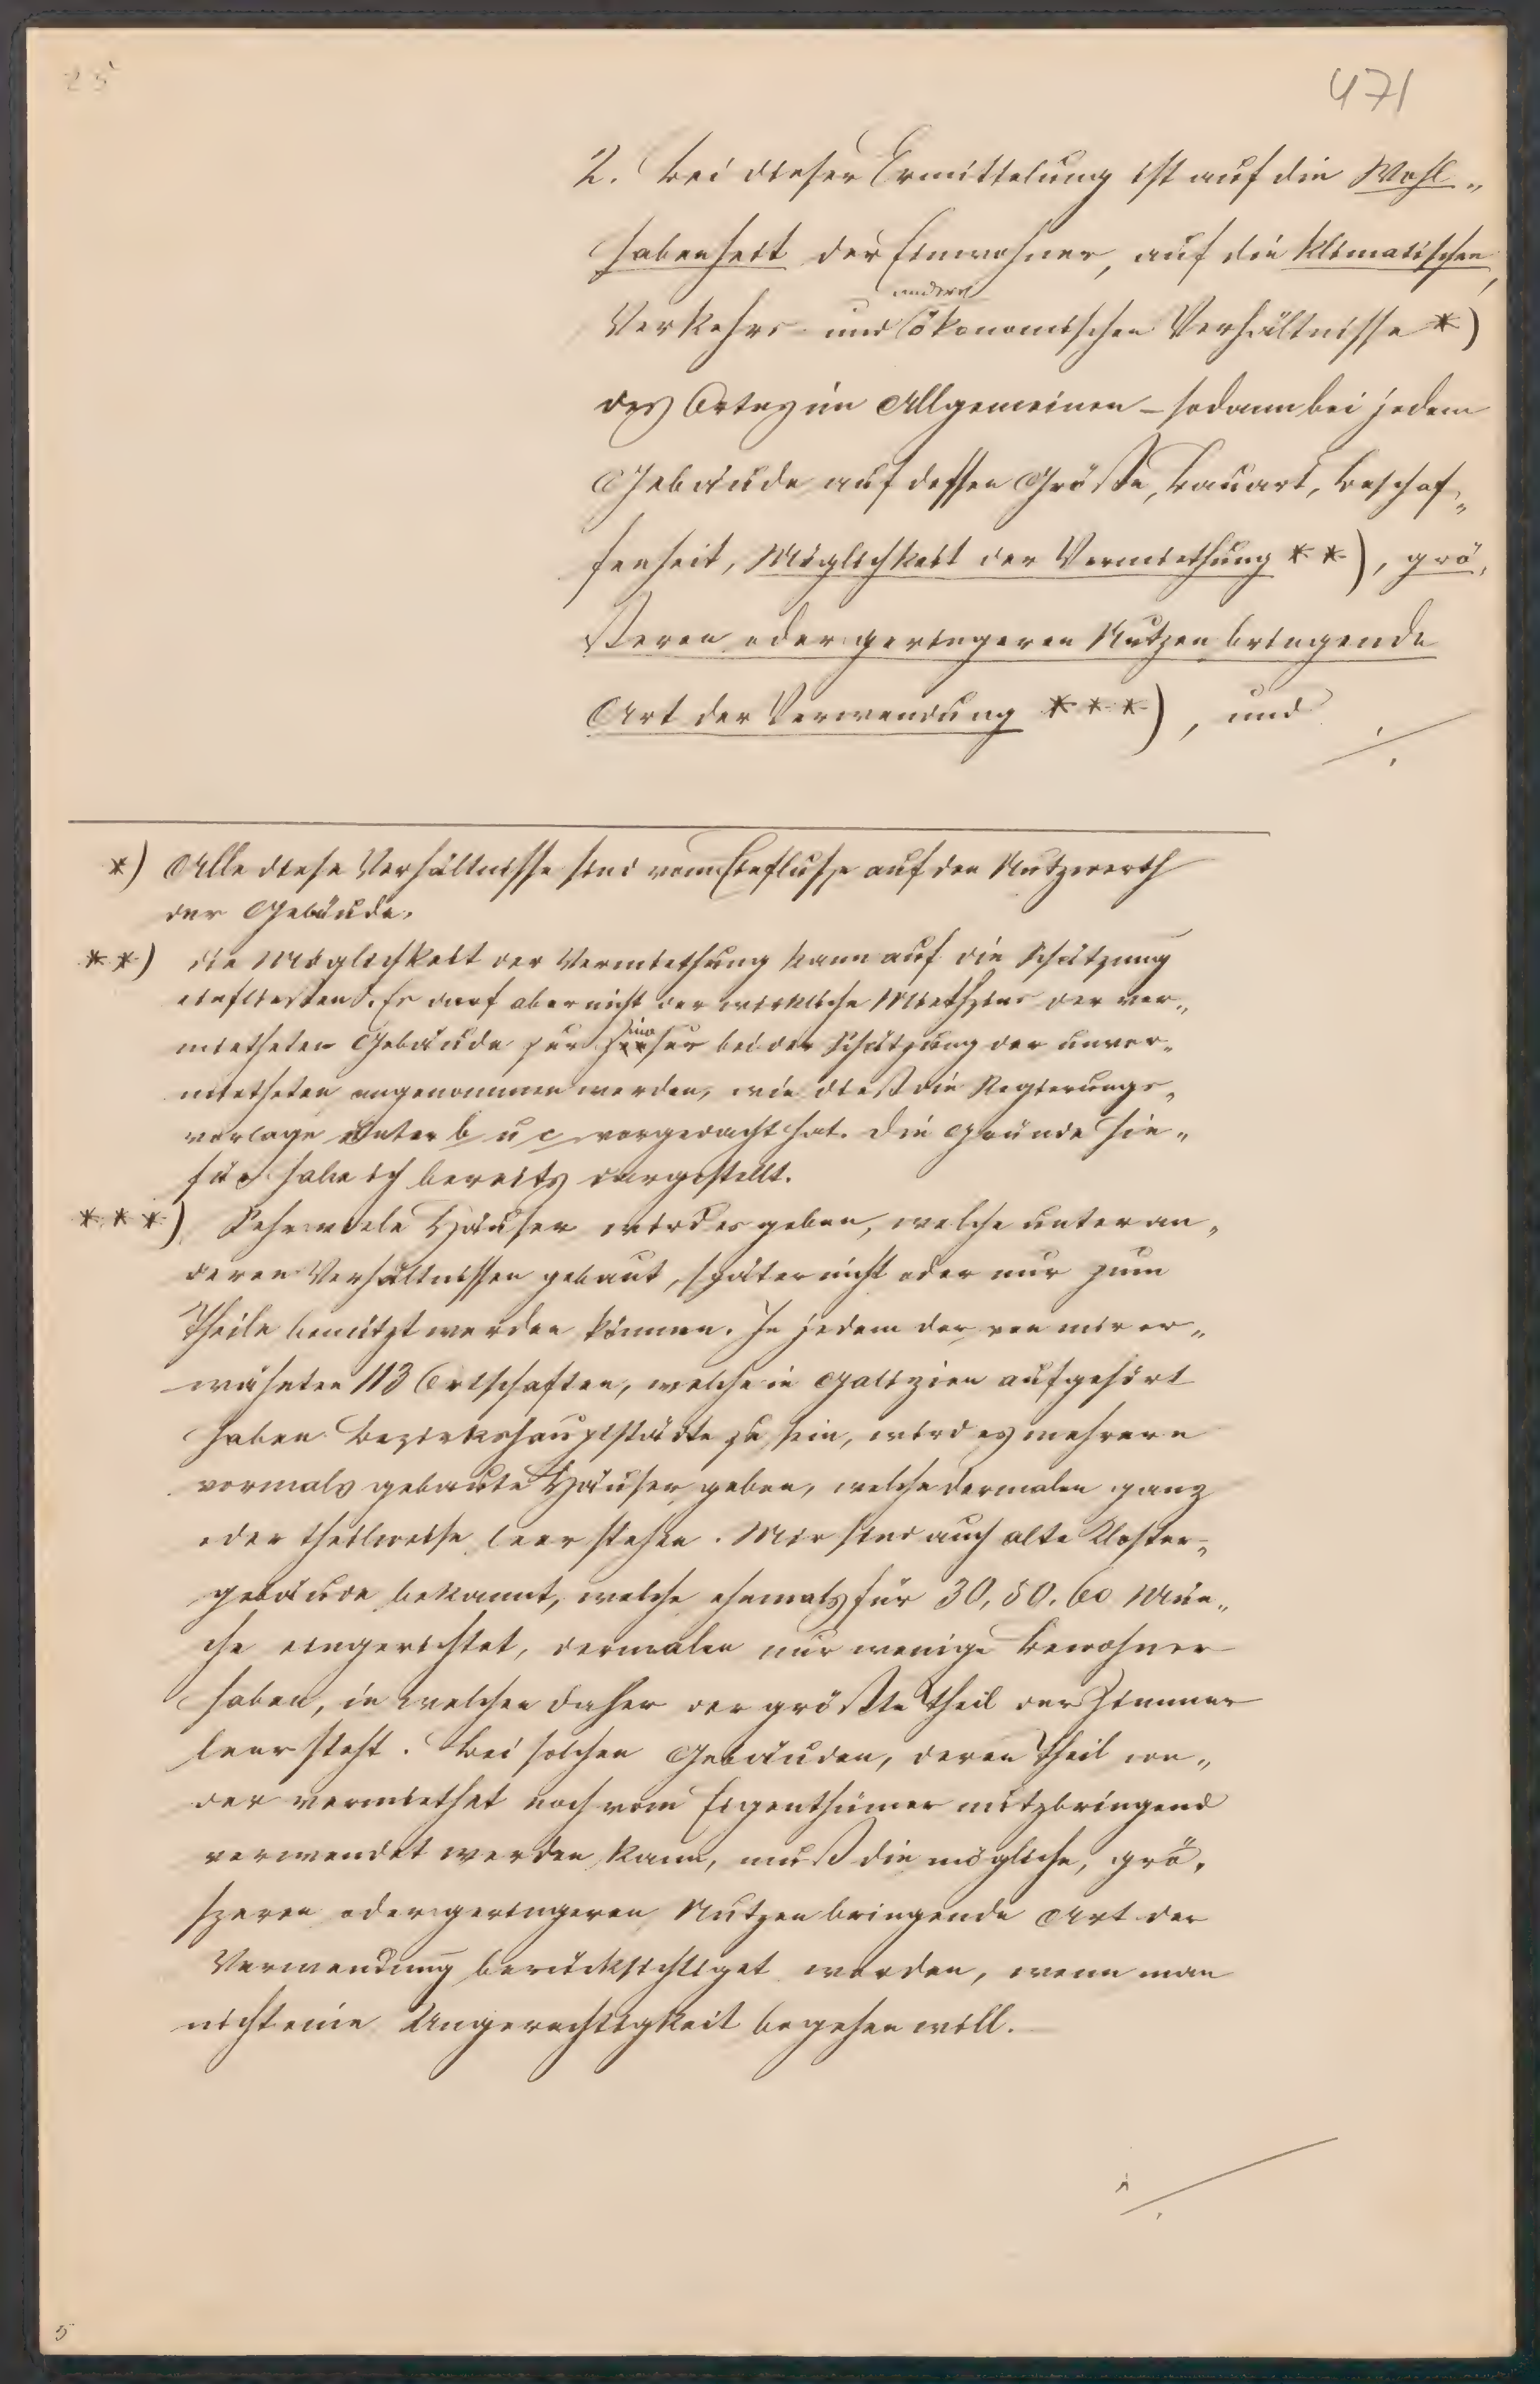 25
471
2. Bei dieser Ermittelung ist auf die Wohl„
habenheit der Einwohner, auf die klimatischen,
andere
Verkehrs- und ökonomischen Verhältnisse *)
des Ortes im Allgemeinen – sodann bei jedem
Gebäude auf dessen Größe, Bauart, Beschaf„
fenheit, Möglichkeit der Vermiethung **), grö„
ßeren oder geringeren Nutzen bringende
Art der Verwendung ***), und ./.
*) Alle diese Verhältnisse sind vom Einflusse auf den Nutzwerth
der Gebäude.
**) die Möglichkeit der Vermiethung kann auf die Schätzung
einfließen. Es darf aber nicht der wirkliche Miethzins der ver„
mietheten Gebäude zur bei der Schätzung der unver„
mietheten angenommen werden, wie dieß die Regierungs„
vorlage unter b u c vorgedacht hat. Die Gründe hie„
für habe ich bereits dargestellt.
***) Sehr viele Häuser wird es geben, welche unter an„
deren Verhältnissen gebaut, später nicht oder nur zum
Theile benützt werden können. In jedem der von mir er„
wähnten 113 Ortschaften, welche in Galizien aufgehört
haben Bezirkshauptstädte zu sein, wird es mehrere
vormals gebaute Häuser geben, welche dermalen ganz
oder theilweise leer stehen. Mir sind auch alte Kloster„
gebäude bekannt, welche ehemals für 30, 50, 60 Mön„
che eingerichtet, dermalen nur wenige Bewohner
haben, in welchen daher der größte Theil der Zimmer
leer steht. Bei solchen Gebäuden, deren Theil we„
der vermiethet noch vom Eigenthümer nutzbringend
verwendet werden kann, muß die mögliche, grö„
szeren oder geringeren Nutzen bringende Art der
Verwendung berücksichtiget werden, wenn man
nicht eine Ungerechtigkeit begehen will.
./.
5